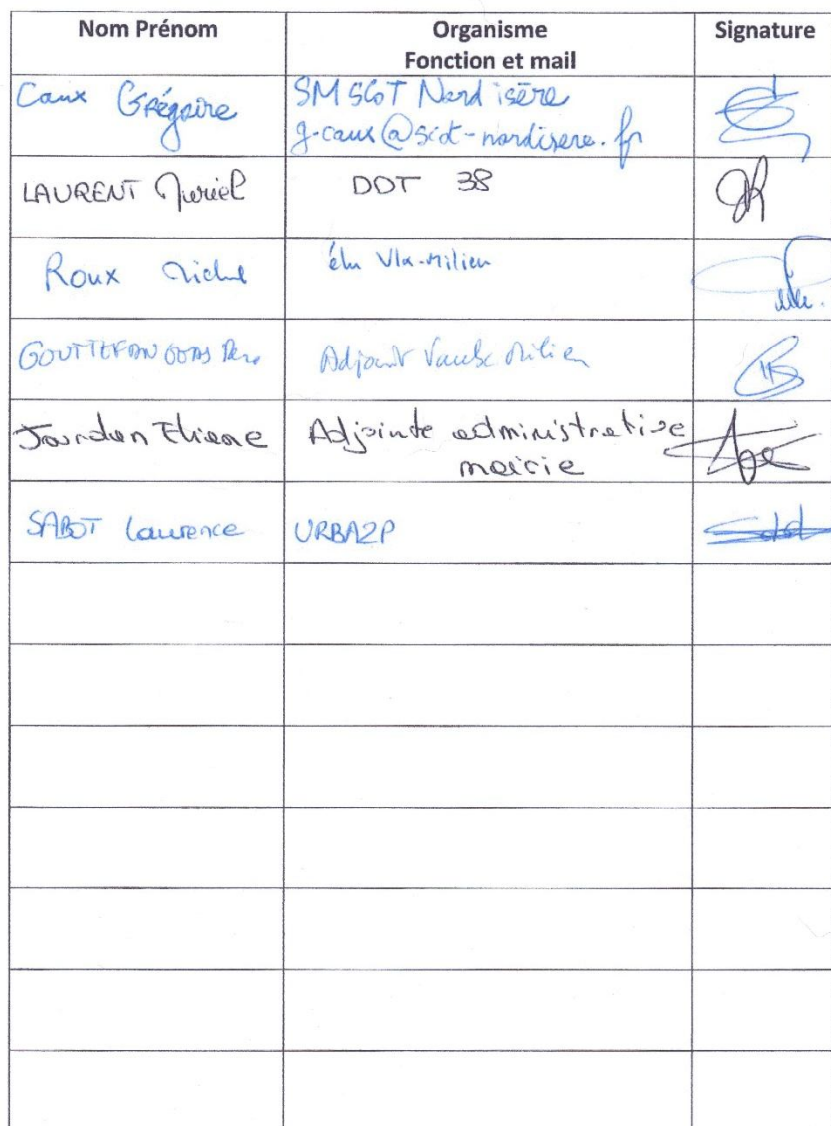 Nom Prénom Organisme Signature
Fonction et mail
Caux Grégoire SMSCoT Nord isère
g-caux@scot-nordisere.fr
LAURENT Muriel DDT 38
Roux Michel élu Vlx-Milien
Adjoint Vaulx Milien
Jourdan Adjointe administrative
mairie
SABOT Laurence URBA2P